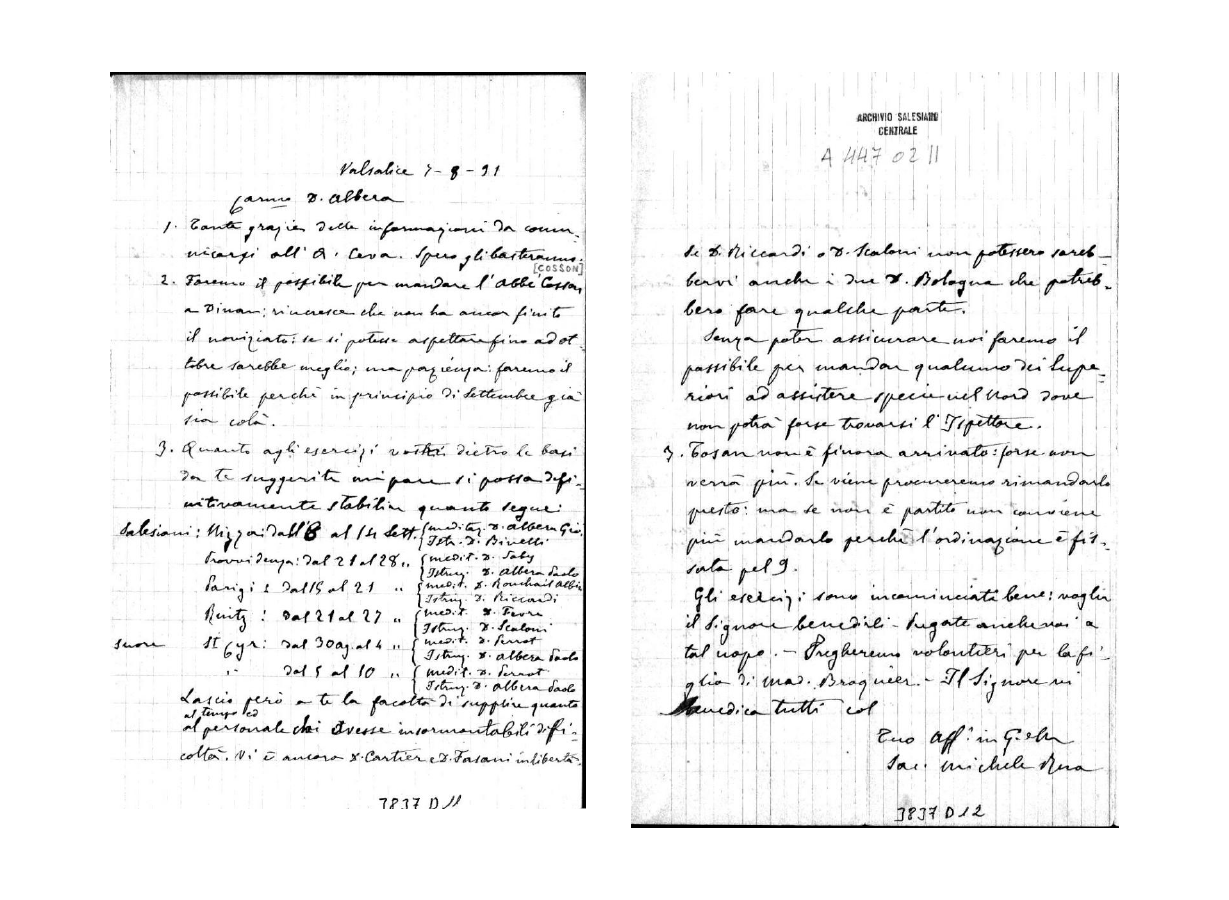 Valsalice 7-8-91
Carmo D. Albera
1. Tante grazie delle informazioni da comu-
nicarsi all' A. Ceva. Spero gli basteranno.
[COSSON]
2. Faremo il possibile per mandare l'Abbé Cosson
a Dinan; rincresce che non ha ancor finito
il noviziato: se si potesse aspettare fino ad ot-
tobre sarebbe meglio; ma pazienza: faremo il
possibile perchè in principio di Settembre già
sia colà.
3. Quanto agli esercizi vostri dietro le basi
da te suggerite mi pare si possa defi-
nitivamente stabilir quanto segue:
Salesiani: Nizza: dall'8 al 14 Sett. { meditaz. D. Albera Gio.
Istr. D. Binelli
Provvidenza: dal 21 al 28 „ { medit. D. Saby
Istruz. D. Albera Paolo
Parigi: dal 15 al 21 „ { medit. D. Ronchail
Istruz. D. Riccardi
Ruitz: dal 21 al 27 „ { medit. D. Fevre
Istruz. D. Scaloni
suore St Cyr: dal 30 ag. al 4 „ { medit. D. Perrot
Istruz. D. Albera Paolo
„ dal 5 al 10 „ { medit. D. Perrot
Istruz. D. Albera Paolo
Lascio però a te la facoltà di supplire quanto
al tempo ed
al personale chi avesse insormontabili diffi-
coltà. Vi è ancora D. Cartier e D. Fasani in libertà.
3837 D 11
ARCHIVIO SALESIANO
CENTRALE
A 447 02 11
Se D. Riccardi o D. Scaloni non potessero sareb-
bervi anche i due D. Bologna che potreb-
bero fare qualche parte.
Senza poter assicurare noi faremo il
possibile per mandar qualcuno dei Supe-
riori ad assistere specie nel Nord dove
non potrà forse trovarsi l'Ispettore.
3. Tosan non è finora arrivato: forse non
verrà più. Se viene procureremo rimandarlo
presto: ma se non è partito non conviene
più mandarlo perchè l'ordinazione è fis-
sata pel 9.
Gli esercizi sono incominciati bene: voglia
il Signore benedirli - Pregate anche voi a
tal uopo. - Pregheremo volontieri per la fi-
glia di mad. Braquier. - Il Signore vi
benedica tutti col
Tuo Aff.° in G. e M.
Sac. Michele Rua
3837 D 12